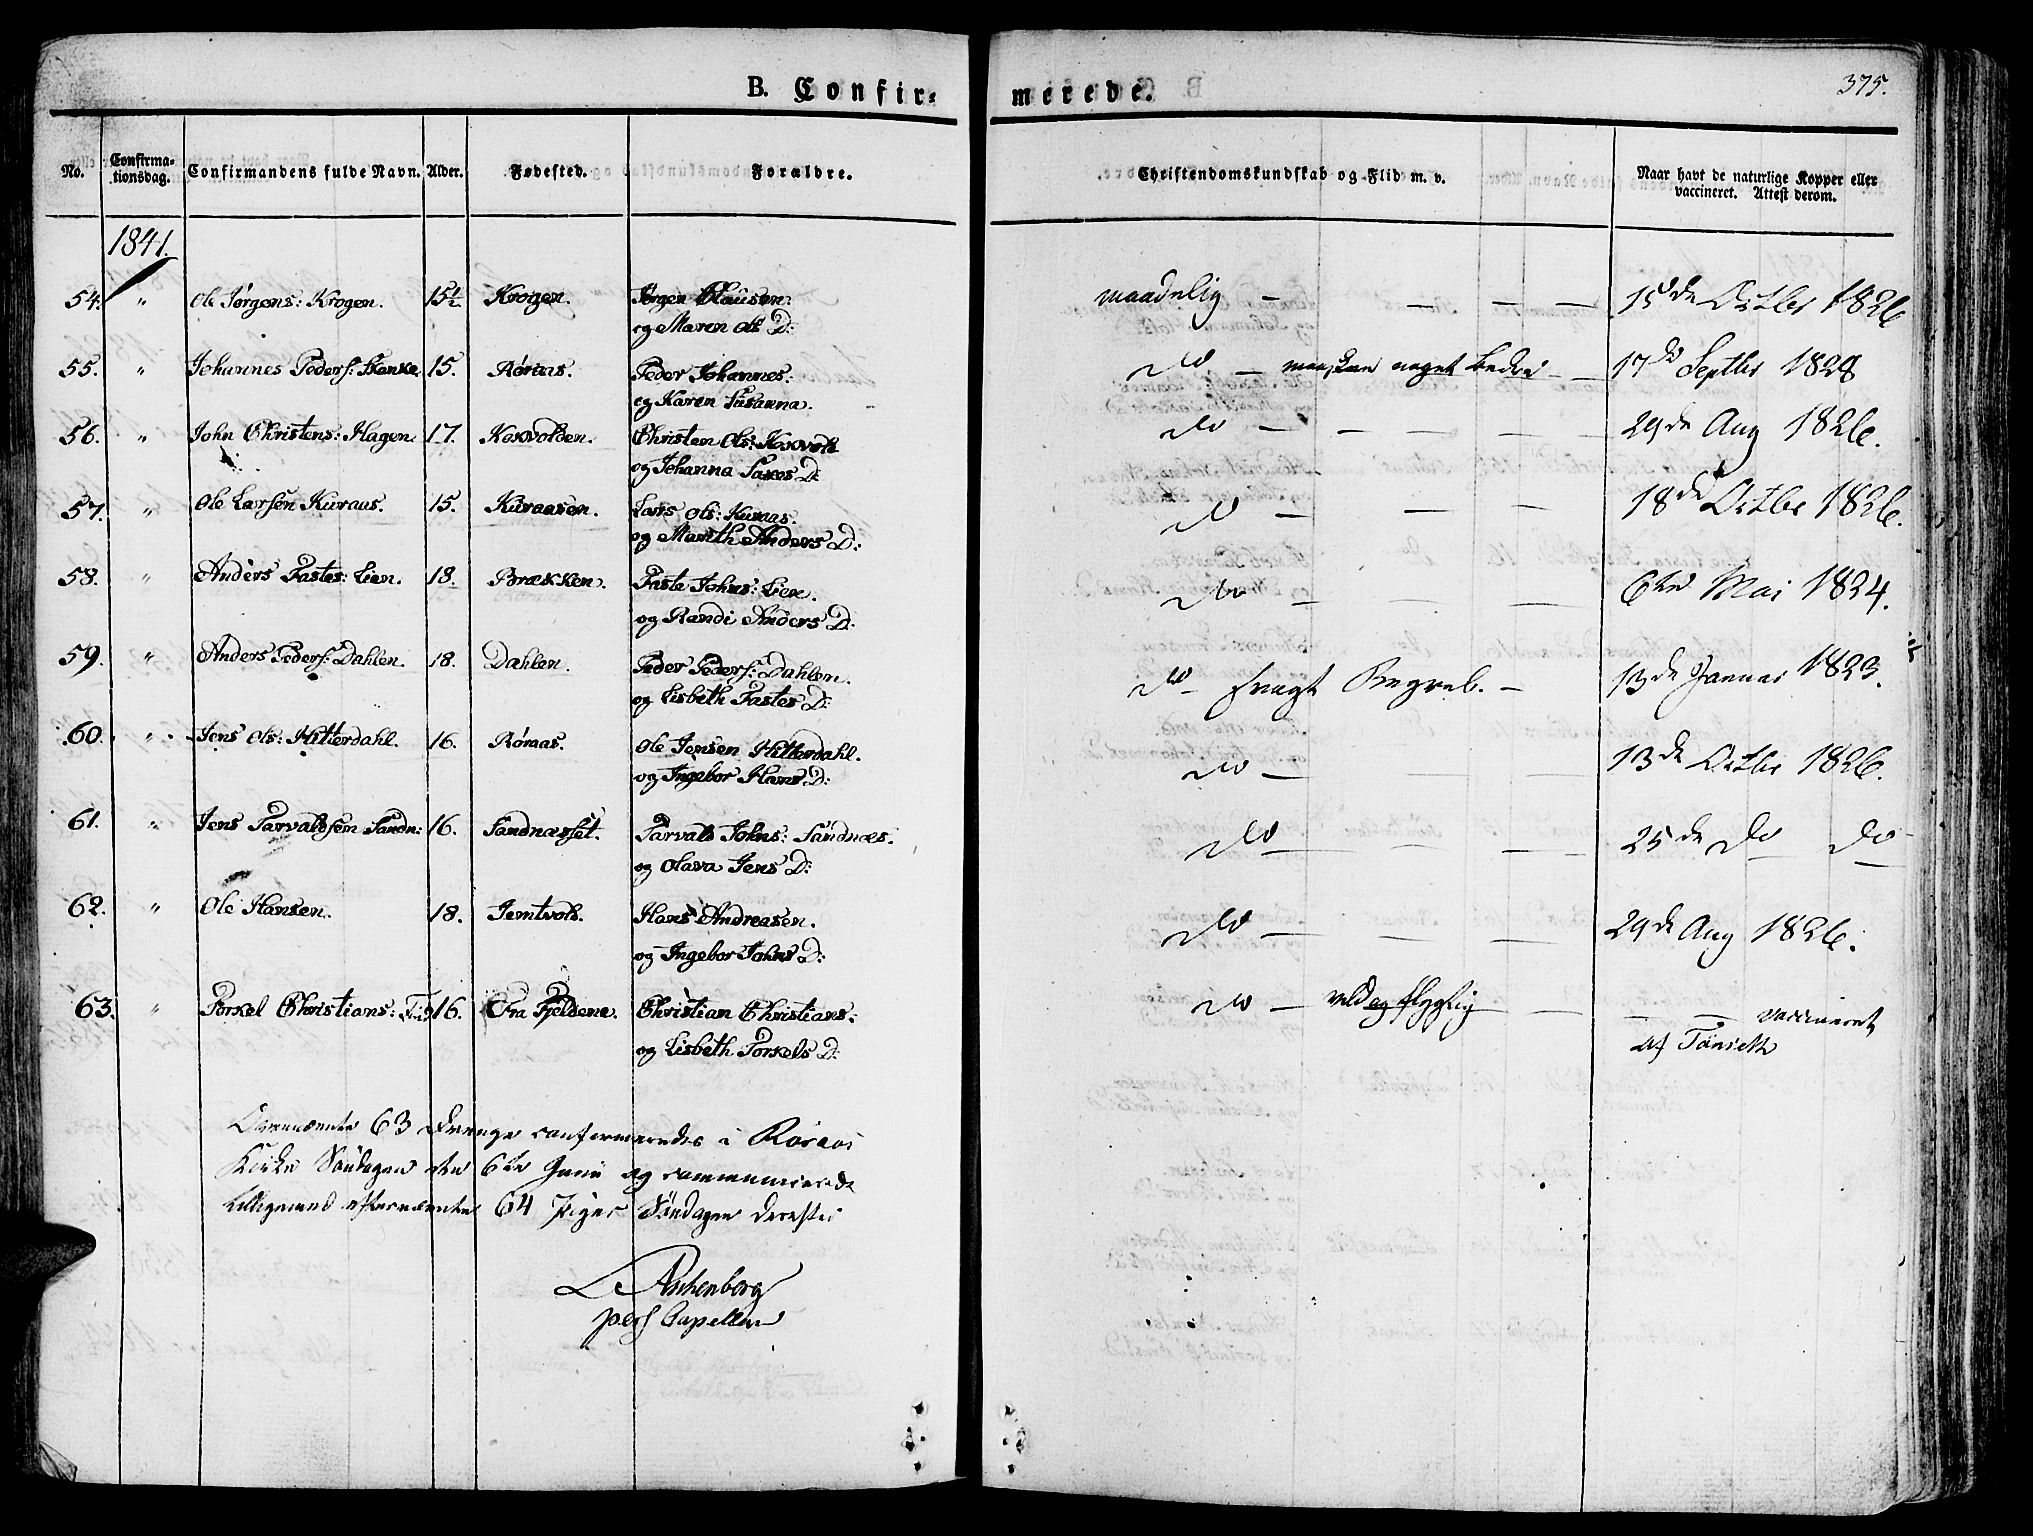 B. Confir-
merede.
375.
No.
Confirma-
tionsdag.
Confirmandens fulde Navn.
Alder.
Fødested.
Forældre.
Christendomskundskab og Flid m. v.
Naar havt de naturlige Kopper eller
vaccineret. Attest derom.
1841.
54. " Ole Jørgens: Krogen. 15½ Krogen. Jørgen Clausen. maadelig — — — — 15de Octbr 1826
og Maren Ols D:
55. " Johannes Peders: Skenke 15. Røraas. Peder Johannes: do — maaskee noget bedre — — 17de Septbr 1828
og Karen Susanna.
56. " John Christens: Hagen. 17. Kosvolden. Christen Ols: Kosvold do — — — — — 29de Aug 1826.
og Johanna Lars D:
57. " Ole Larsen Kuraas. 15. Kuraasen. Lars Ols: Kuraas. do — — — 18de Octbr 1826.
og Marith Anders D:
58. " Anders Pastes: Lien. 18. Brækken. Paste Johns: Lien. do — — — 6te Mai 1824.
og Randi Anders D:
59. " Anders Peders: Dahlen. 18. Dahlen. Peder Peders: Dahlen. do — svagt Begreb. — 13de Januar 1823.
og Lisbeth Pastes D:
60. " Jens Ols: Hitterdahl. 16. Røraas. Ole Jensen Hitterdahl. do — 13de Octbr 1826.
og Ingebor Hans D:
61. " Jens Tarvaldsen Sandn: 16. Sandnæsset. Tarvald Johns: Sandnæs. do — — — 25de do do
og Olava Jens D:
62. " Ole Hansen. 18. Jemtvold. Hans Andreasen. do — — — 29de Aug 1826.
og Ingebor Johns D:
63. " Torkel Christians: 16. Fra Fjeldene. Christian Christians: do — — — — vaccineret
og Lisbeth Torkels D: af
Ovennævnte 63 Drenge confirmeredes i Røraas
Kirke Søndagen den 6te Junii og communicerede
tilligemed efternævnte 64 Piger Søndagen derefter
Aschenberg
pers Capellan